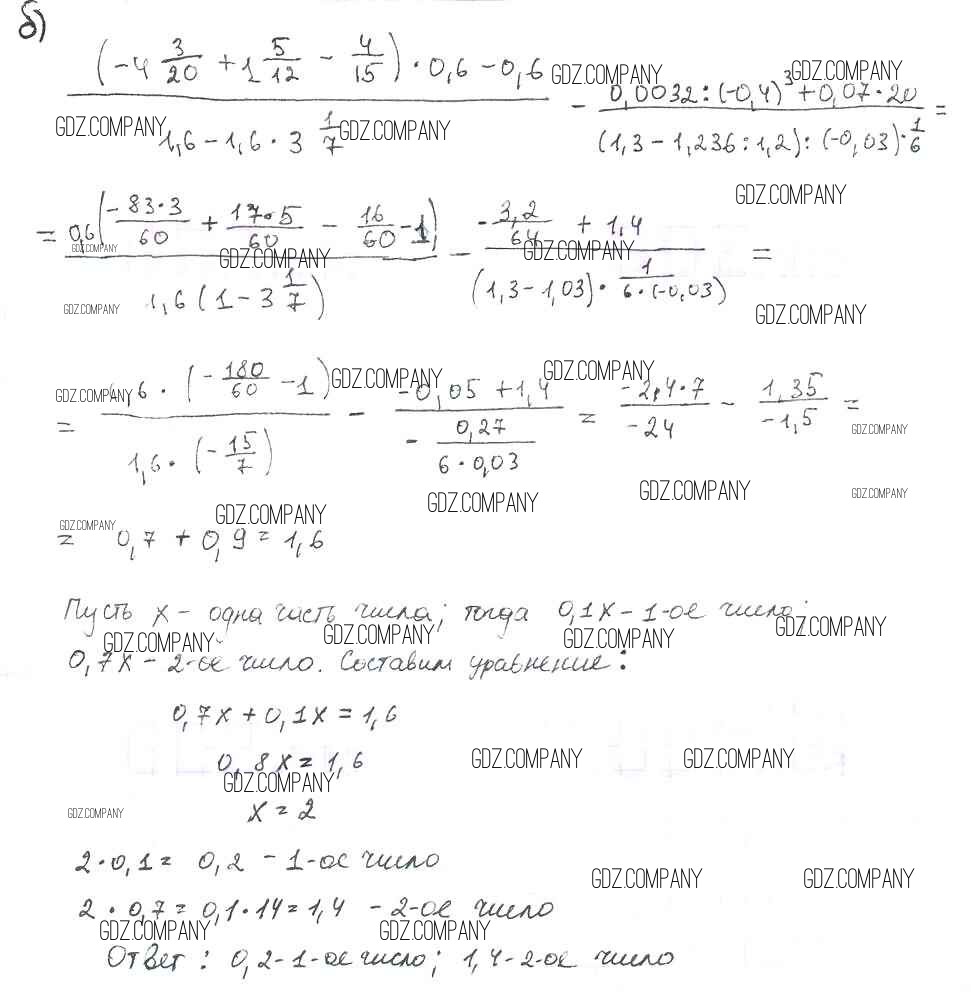 б)
(-4 3/20 + 1 5/12 - 4/15) · 0,6 - 0,6 / 1,6 - 1,6 · 3 1/7 - 0,0032 : (-0,4)³ + 0,07 · 20 / (1,3 - 1,236 : 1,2) : (-0,03) · 1/6 =
GDZ.COMPANY GDZ.COMPANY
GDZ.COMPANY GDZ.COMPANY
GDZ.COMPANY
= 0,6 (-83·3/60 + 17·5/60 - 16/60 - 1) / 1,6 (1 - 3 1/7) - -3,2/64 + 1,4 / (1,3 - 1,03) · 1/6·(-0,03) =
GDZ.COMPANY GDZ.COMPANY GDZ.COMPANY
GDZ.COMPANY GDZ.COMPANY
= 6 · (-180/60 - 1) / 1,6 · (-15/7) - -0,05 + 1,4 / - 0,27/6·0,03 = -2,4·7/-24 - 1,35/-1,5 =
GDZ.COMPANY GDZ.COMPANY GDZ.COMPANY GDZ.COMPANY
GDZ.COMPANY GDZ.COMPANY GDZ.COMPANY
GDZ.COMPANY GDZ.COMPANY
= 0,7 + 0,9 = 1,6
Пусть x - одна часть числа; тогда 0,1x - 1-ое число;
GDZ.COMPANY GDZ.COMPANY GDZ.COMPANY GDZ.COMPANY
0,7x - 2-ое число. Составим уравнение:
0,7x + 0,1x = 1,6
0,8x = 1,6
GDZ.COMPANY GDZ.COMPANY GDZ.COMPANY
x = 2
GDZ.COMPANY
2 · 0,1 = 0,2 - 1-ое число
GDZ.COMPANY GDZ.COMPANY
2 · 0,7 = 0,1 · 14 = 1,4 - 2-ое число
GDZ.COMPANY GDZ.COMPANY
Ответ: 0,2 - 1-ое число; 1,4 - 2-ое число